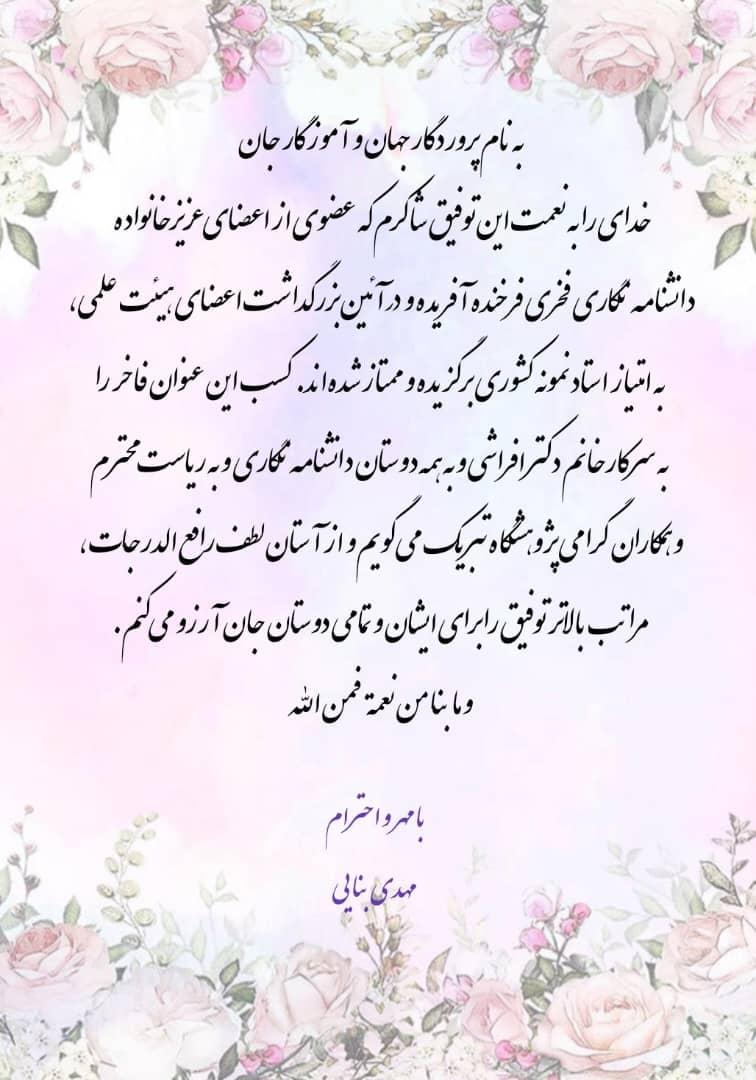 به نام پروردگار جهان و آموزگار جان
خدای را به نعمت این توفیق شاکرم که عضوی از اعضای عزیز خانواده
دانشنامه نگاری فخری فرخنده آفریده و در آئین بزرگداشت اعضای هیئت علمی،
به امتیاز استاد نمونه کشوری برگزیده و ممتاز شده اند. کسب این عنوان فاخر را
به سرکار خانم دکتر افراشی و به همه دوستان دانشنامه نگاری و به ریاست محترم
و همکاران گرامی پژوهشگاه تبریک می گویم و از آستان لطف رافع الدرجات،
مراتب بالاتر توفیق را برای ایشان و تمامی دوستان جان آرزو می کنم .
و ما بنا من نعمة فمن الله
با مهر و احترام
مهدی بنایی